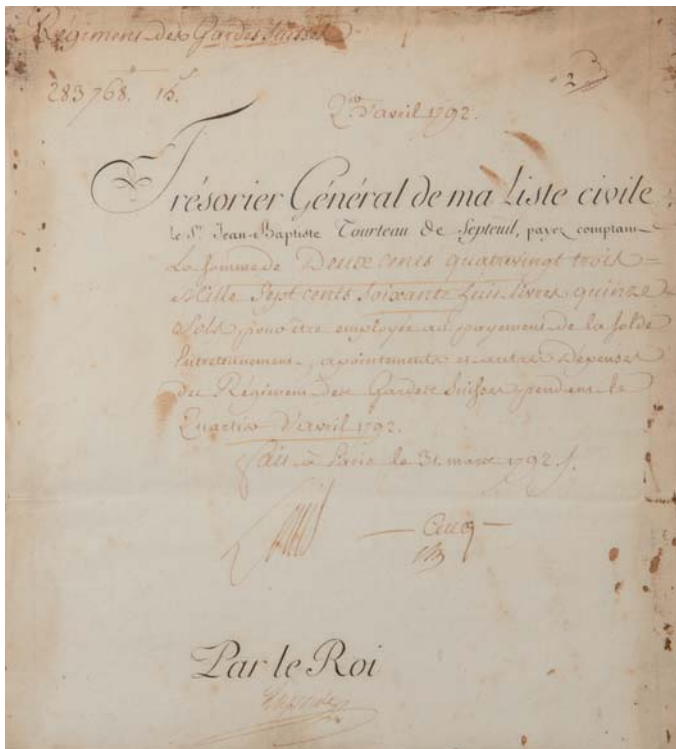 Régiment des Gardes Suisses
283768. 15.
2
Qer. d'avril 1792.
Trésorier Général de ma liste civile,
le Sr. Jean-Baptiste Tourteau de Septeuil, payez comptant
La somme de Deux cents quatrevingt trois
Mille Sept cents Soixante huit livres quinze
Sols, pour être employée au payement de la solde
L'entretennement, apointements et autres Dépenses
du Régiment des Gardes Suisses pendant le
Quartier d'avril 1792.
fait à Paris le 31. mars 1792.
Louis
Par le Roi